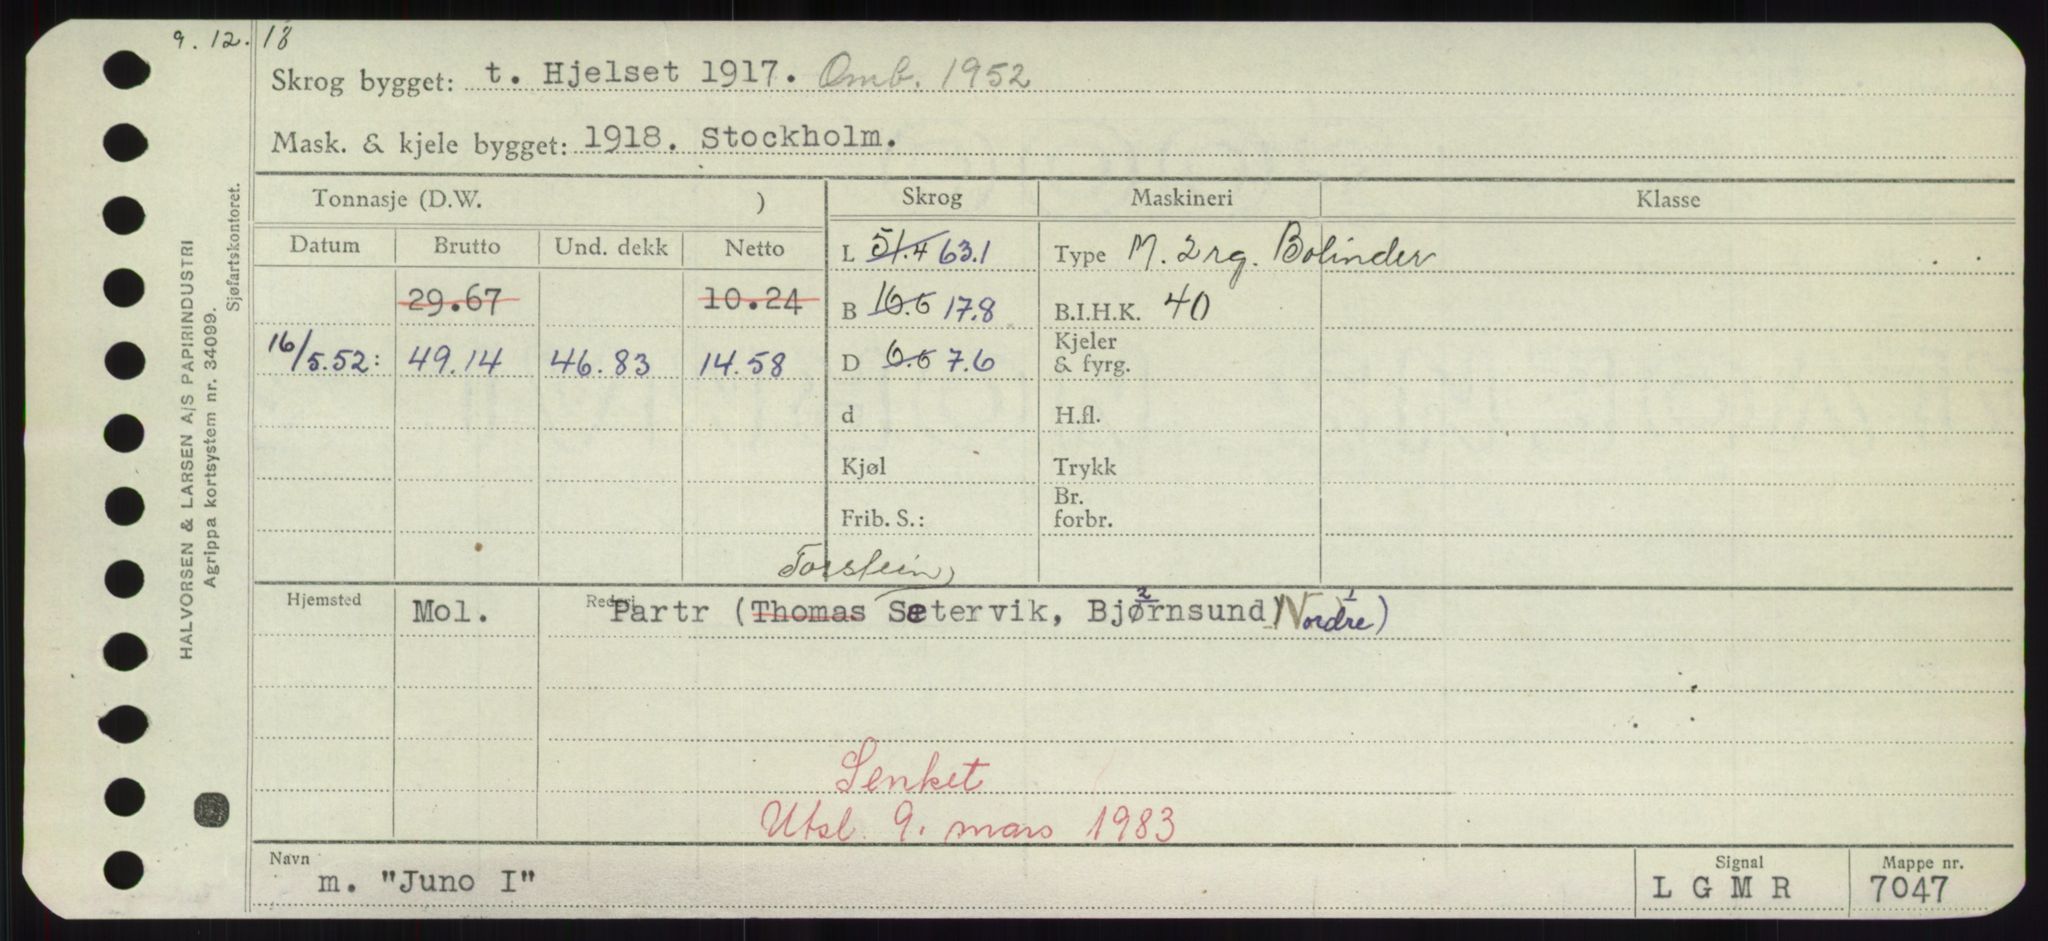 9. 12. 18
Skrog bygget: t. Hjelset 1917. Omb. 1952
Mask. & kjele bygget: 1918. Stockholm.
Tonnasje (D.W. ) Skrog Maskineri Klasse
Datum Brutto Und. dekk Netto L 51.4 63.1 Type M. 2 rg. Bolinder
29.67 10.24 B 16.6 17.8 B.I.H.K. 40
16/5.52: 49.14 46.83 14.58 D 6.6 7.6 Kjeler & fyrg.
d H.fl.
Kjøl Trykk
Frib. S.: Br. forbr.
Torstein
Hjemsted Mol. Rederi Partr (Thomas Sætervik, Bjørnsund) Nordre)
2 1
Senket
Utsl. 9. mars 1983
Navn m. "Juno I" Signal LGMR Mappe nr. 7047
HALVORSEN & LARSEN A/S PAPIRINDUSTRI
Agrippa kortsystem nr. 34099.
Sjøfartskontoret.